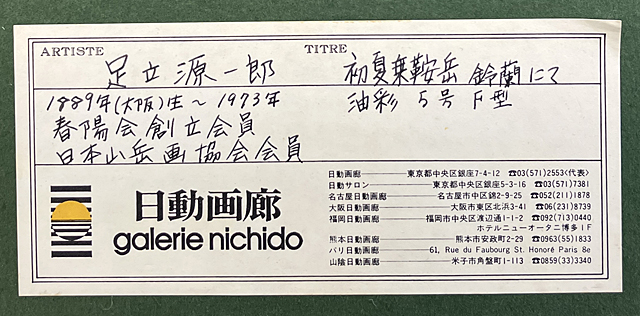 ARTISTE TITRE
足立源一郎 初夏乗鞍岳 鈴蘭にて
1889年(大阪)生～1973年 油彩 5号 F型
春陽会創立会員
日本山岳画協会会員
日動画廊
galerie nichido
日動画廊 東京都中央区銀座7-4-12 ☎03(571)2553<代表>
日動サロン 東京都中央区銀座5-3-16 ☎03(571)7381
名古屋日動画廊 名古屋市中区錦2-9-25 ☎052(211)1878
大阪日動画廊 大阪市東区北浜3-41 ☎06(231)8739
福岡日動画廊 福岡市中央区渡辺通1-1-2 ☎092(713)0440
ホテルニューオータニ博多1F
熊本日動画廊 熊本市安政町2-29 ☎0963(55)1833
パリ日動画廊 61, Rue du Faubourg St. Honoré Paris 8e
山陰日動画廊 米子市角盤町1-113 ☎0859(33)3340